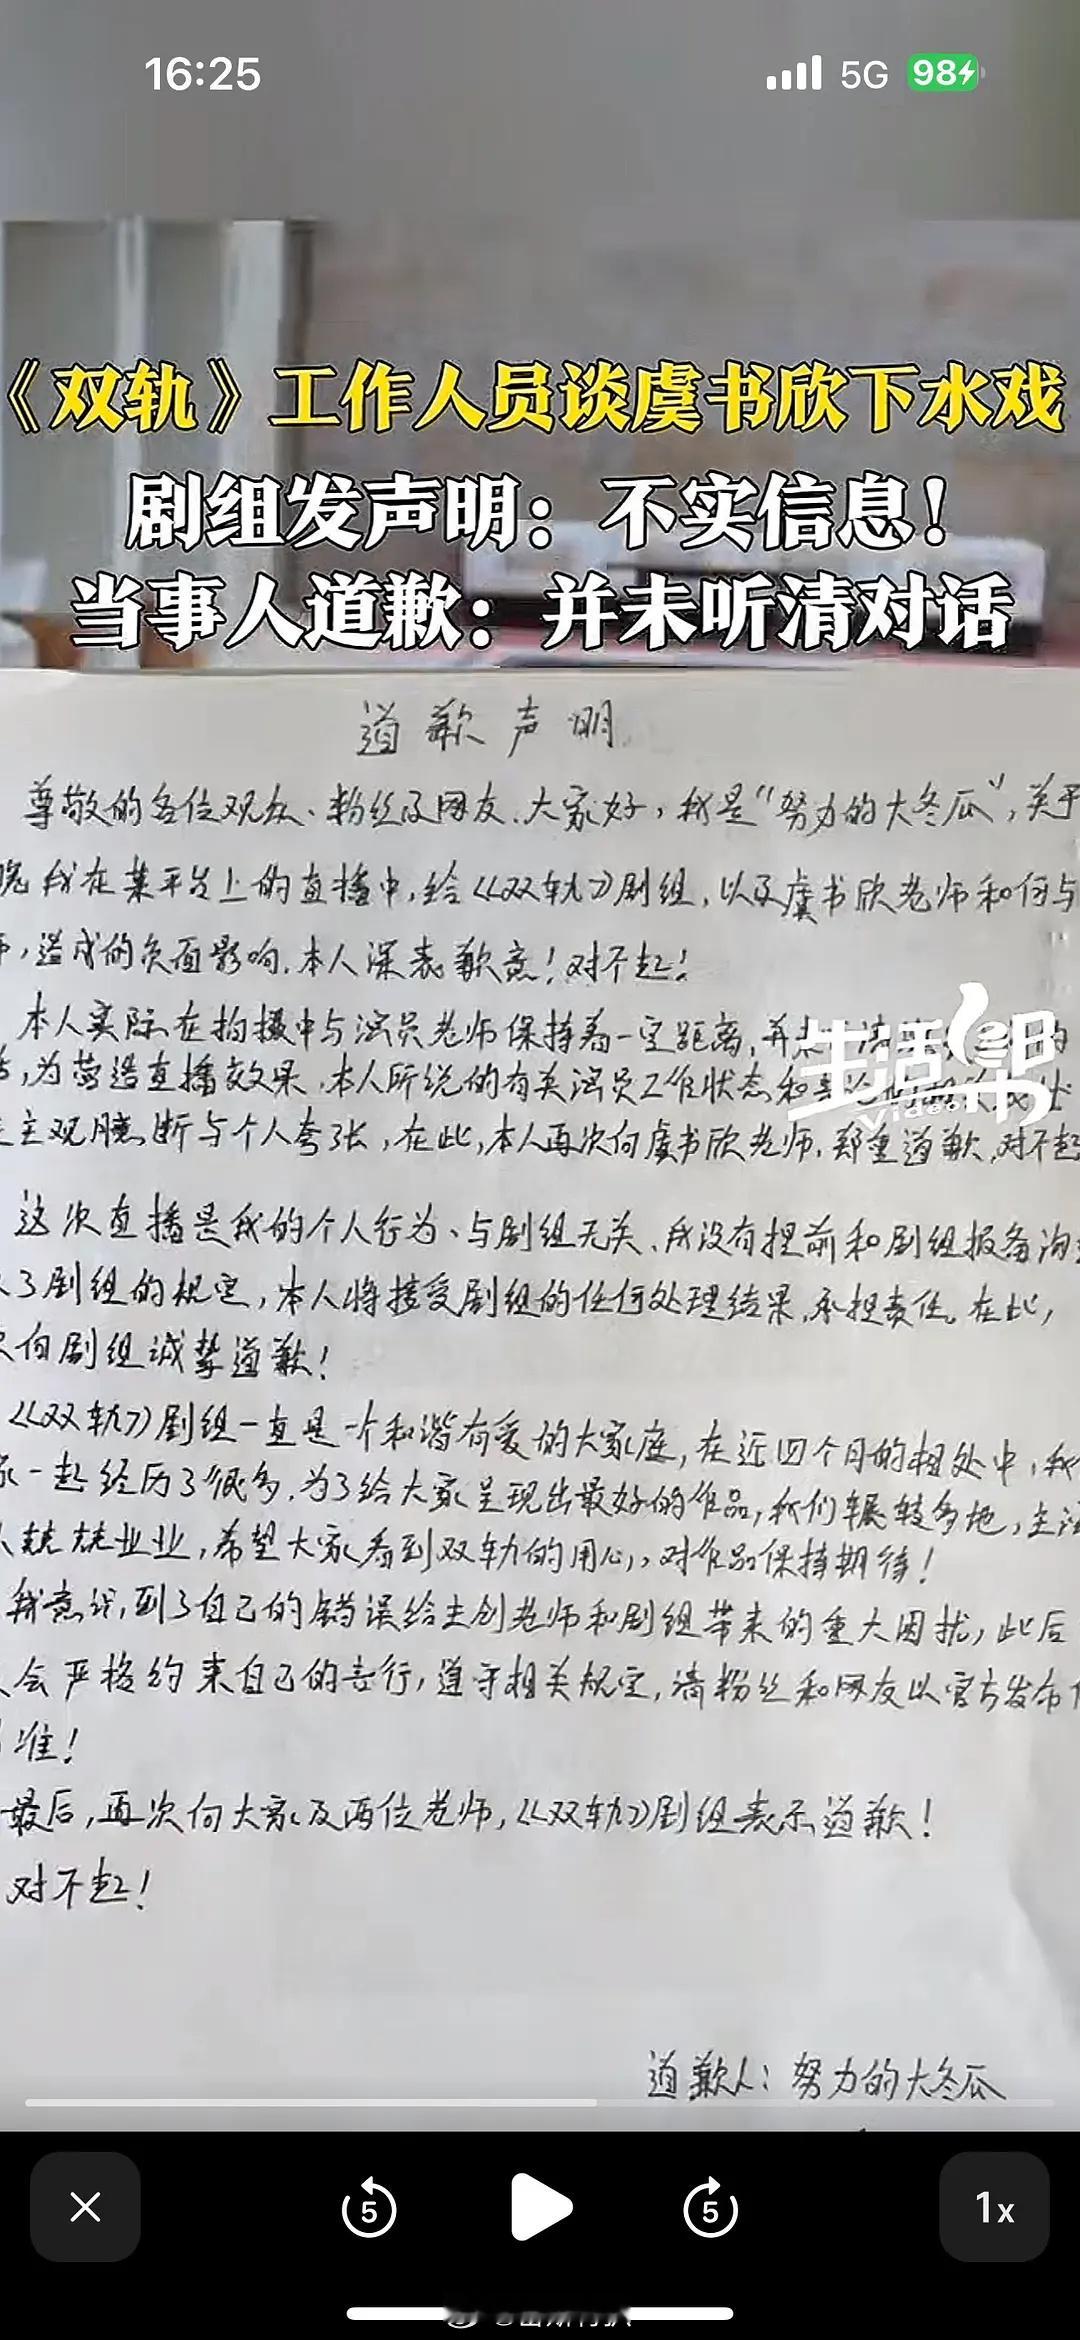 16:25
5G 98
《双轨》工作人员谈虞书欣下水戏
剧组发声明：不实信息！
当事人道歉：并未听清对话
道歉声明
尊敬的各位观众、粉丝及网友、大家好，我是“努力的大冬瓜”，关于
晚我在某平台上的直播中，给《双轨》剧组，以及虞书欣老师和何与
师，造成的负面影响、本人深表歉意！对不起！
生活帮
本人实际在拍摄中与演员老师保持着一定距离，并未
为营造直播效果、本人所说的有关演员工作状态和
Video
主观臆断与个人夸张，在此，本人再次向虞书欣老师、郑重道歉，对不起
这次直播是我的个人行为、与剧组无关、我没有提前和剧组报备沟
了剧组的规定，本人将接受剧组的任何处理结果、承担责任。在此，
次向剧组诚挚道歉！
《双轨》剧组一直是一个和谐有爱的大家庭，在近四个月的相处中，我
家一起经历了很多、为了给大家呈现出最好的作品，我们辗转多地，
人兢兢业业，希望大家看到双轨的用心，对作品保持期待！
我意识，到了自己的错误给主创老师和剧组带来的重大困扰，此后
会严格约束自己的言行，遵守相关规定，请粉丝和网友以官方发布
准！
最后，再次向大家及两位老师，《双轨》剧组表示道歉！
对不起！
道歉人：努力的大冬瓜
5
5
1x